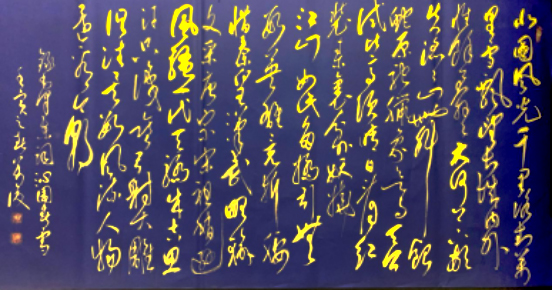 北國風光千里冰封萬
里雪飄望長城內外
惟餘莽莽大河上下頓
失滔滔山舞銀
蛇原馳蠟象欲與天公
試比高須晴日看紅
裝素裹分外妖嬈
江山如此多嬌引無
數英雄競折腰
惜秦皇漢武略輸
文采唐宗宋祖稍遜
風騷一代天驕成吉思
汗只識彎弓射大雕
俱往矣數風流人物
還看今朝
錄毛澤東詞沁園春雪
壬寅年秋